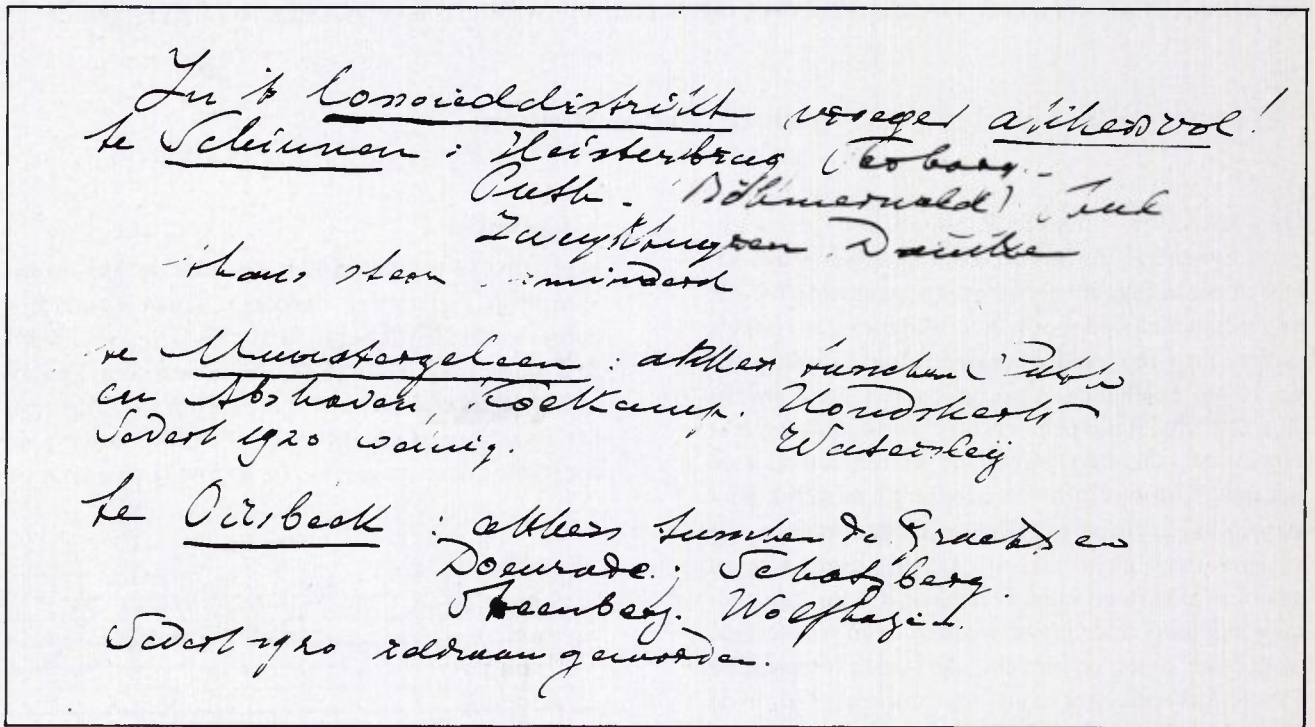 In 't Loessieddistrikt vroeger akkers vol!
te Schinnen: Heisterbrug Terborg.
Puth. Böhmerwald
Zweykhuyzen
thans sterk verminderd
te Munstergeleen: akkers tusschen Puth
en Abshoven Hondskerk
Sedert 1920 weinig. Watersley
te Oirsbeek: akkers tusschen de Gracht en
Doenrade. Schatsberg.
Steenberg. Wolfhagen.
Sedert 1920 zeldzaam geworden.